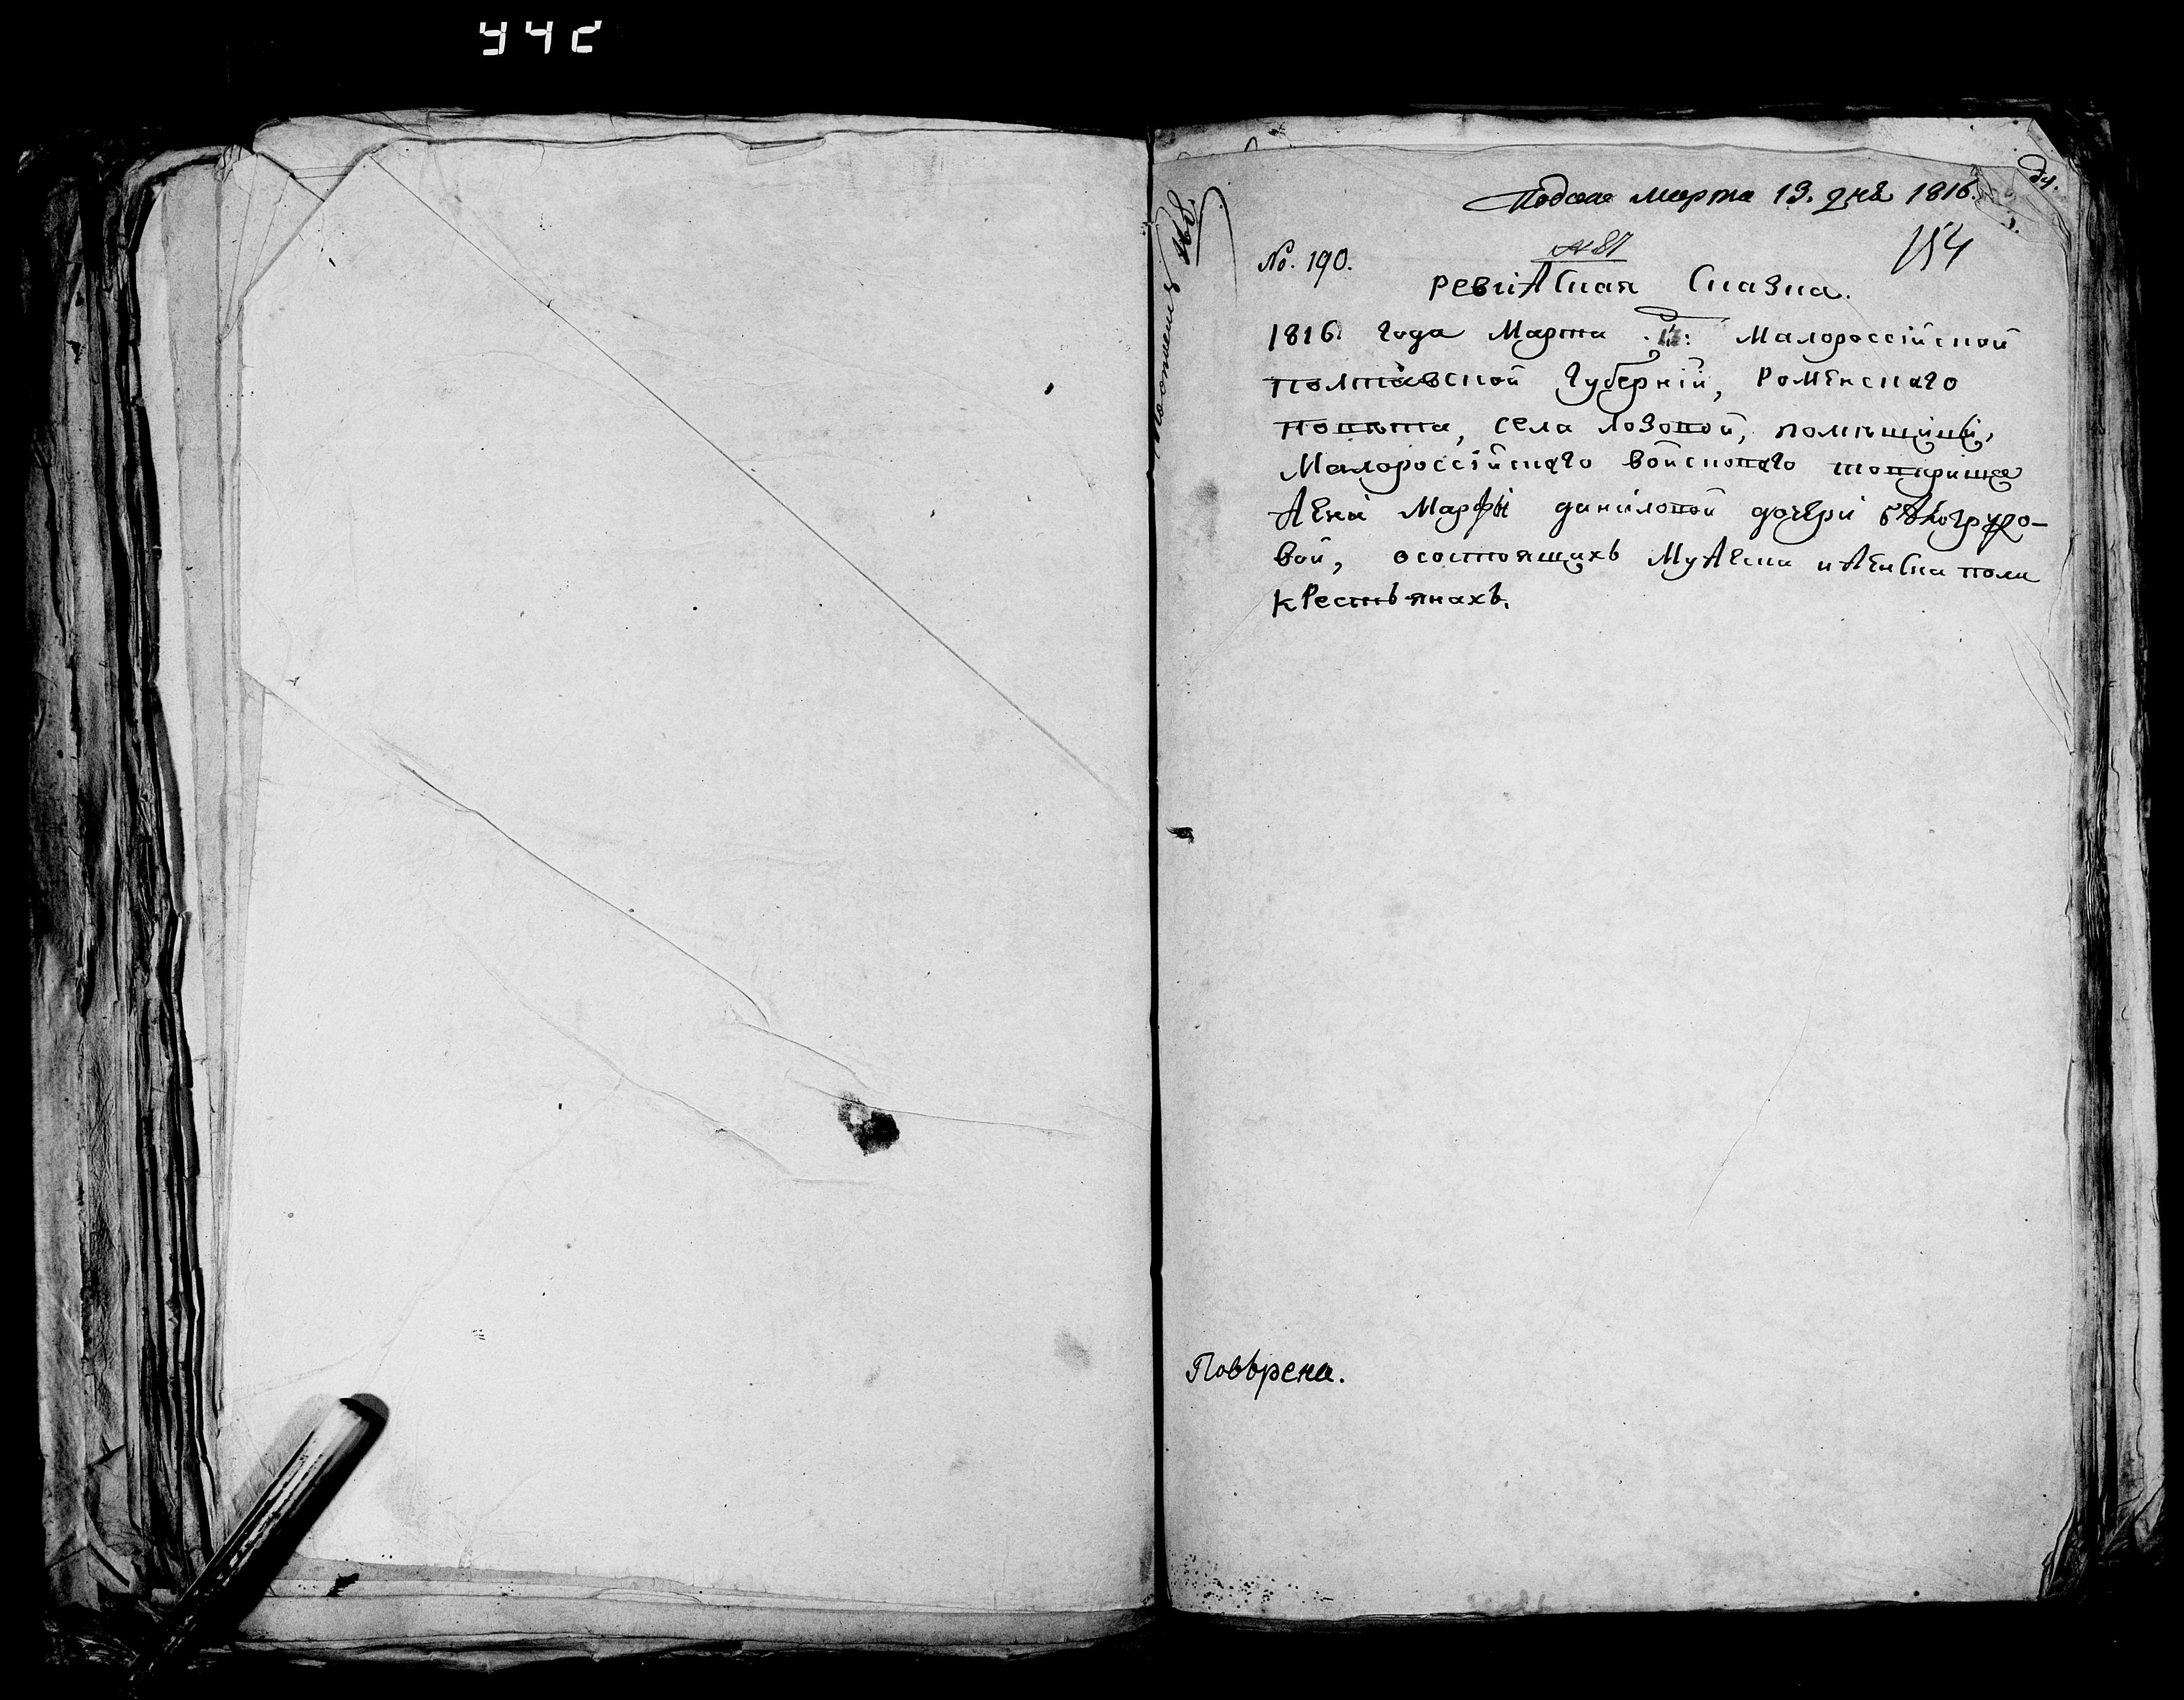 Подана марта 13. дня 1816.
154
No. 190.
№ 87
Ревижская Сказка.
1816 года Марта Малороссійской
полтавской губерніи, Роменскаго
повѣта, села Лозовой, помѣщицы,
Малороссійскаго войсковаго товарища
жены Марфы даниловой дочери бѣлогрудо-
вой, осостоящихъ Мужеска и женска пола
крестьянахъ.
Повѣрена.